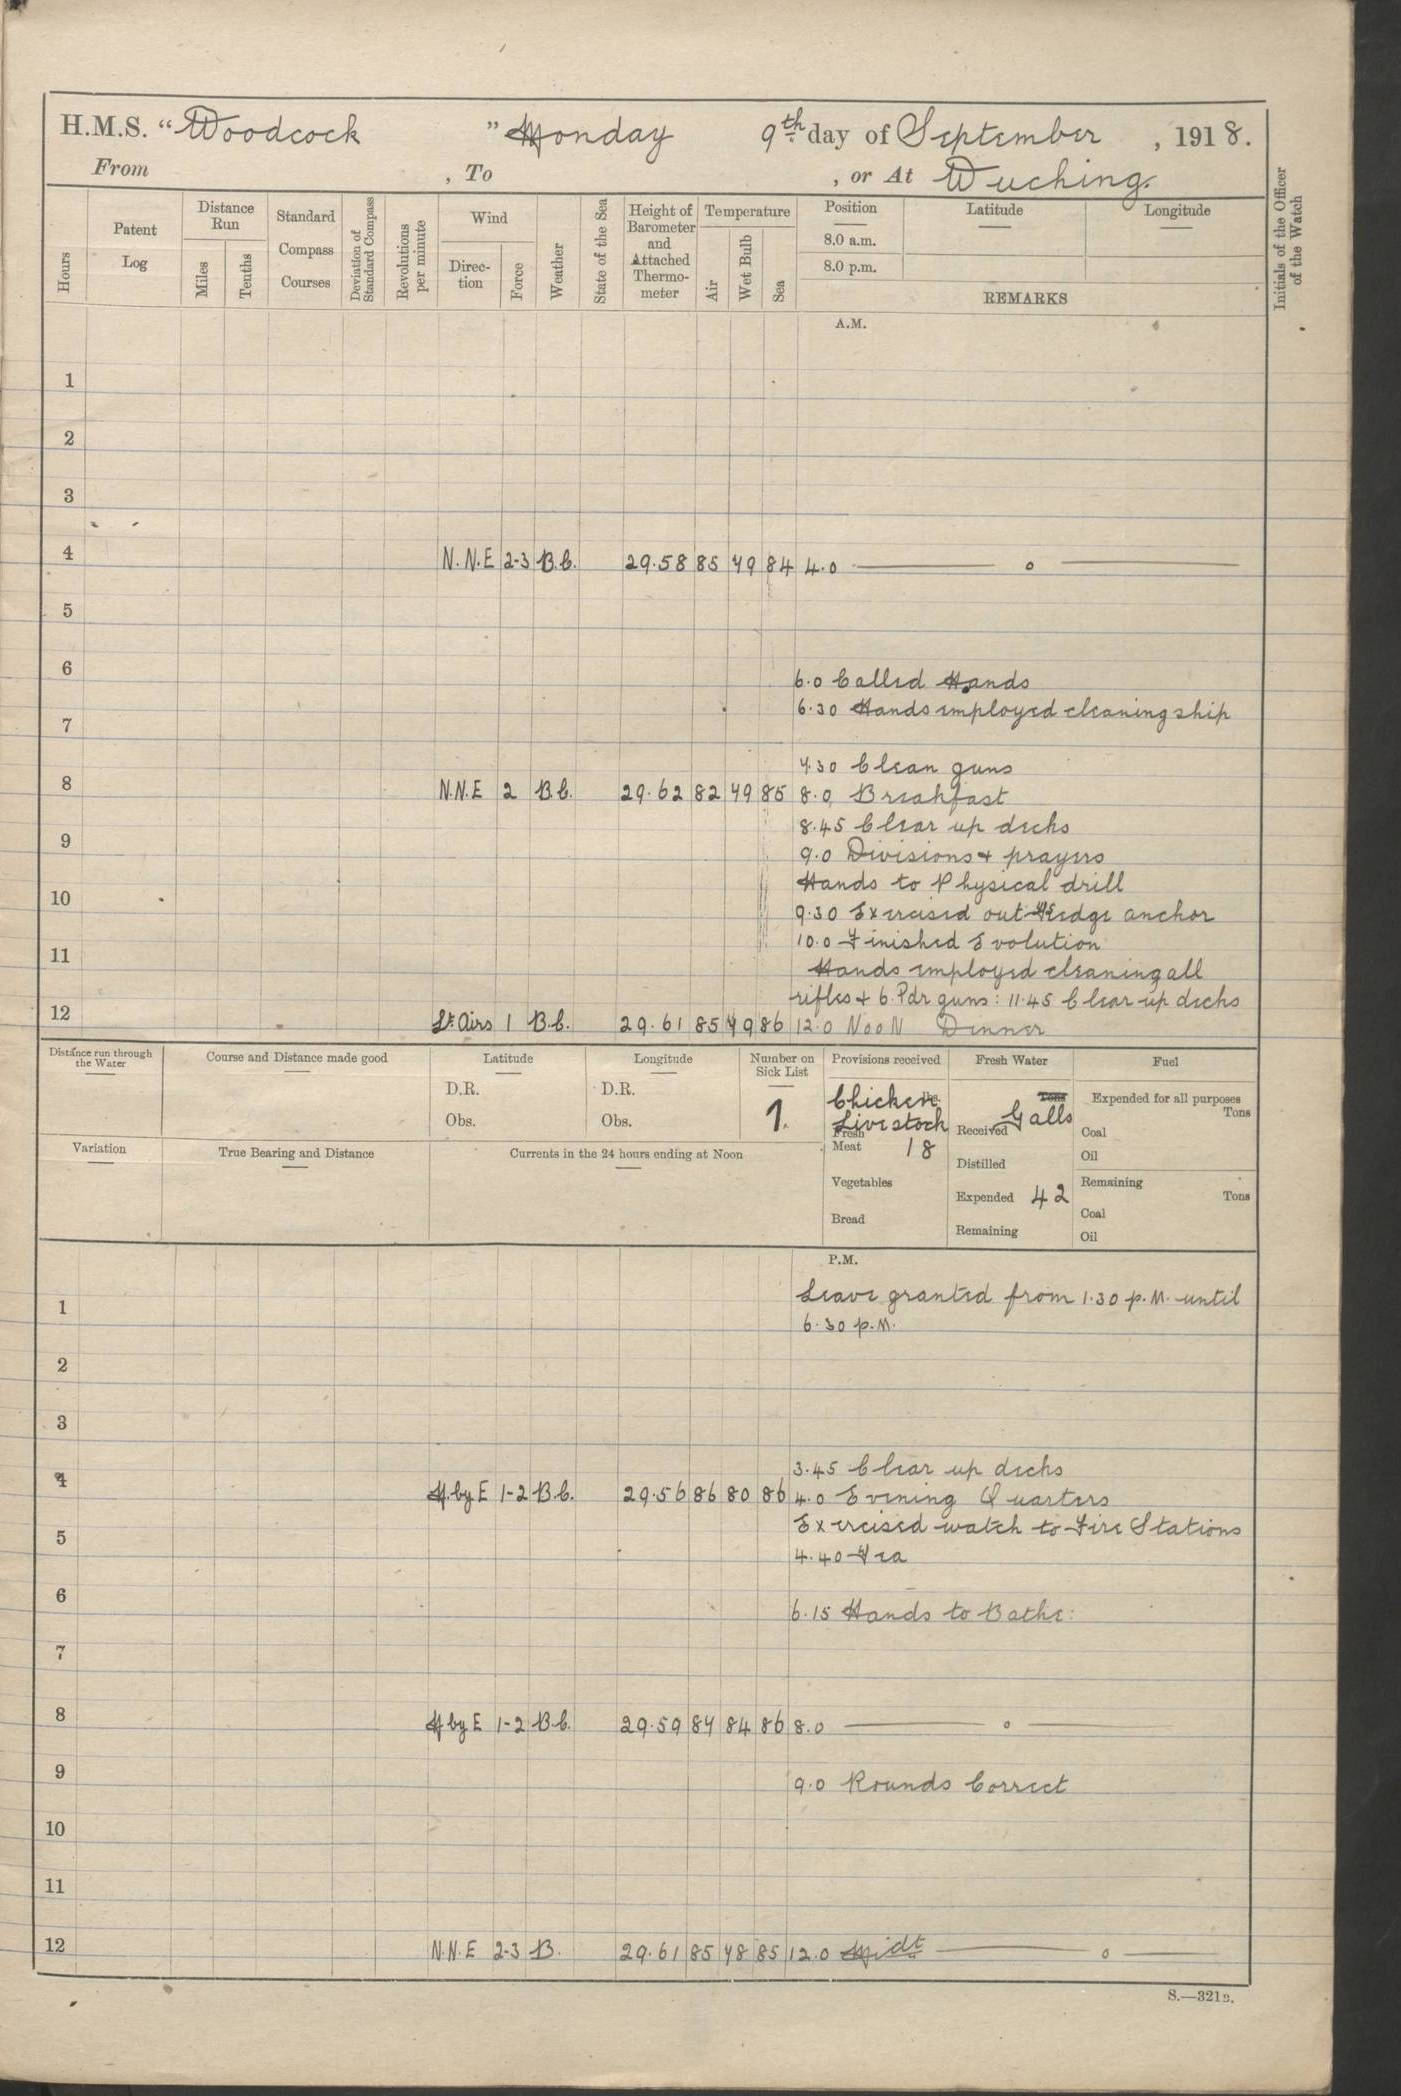 H.M.S. “Woodcock” Monday 9th day of September, 1918.
From , To , or At Wuching.
Hours
Patent Log
Distance Run
Miles
Tenths
Standard Compass Courses
Deviation of Standard Compass
Revolutions per minute
Wind
Direc-tion
Force
Weather
State of the Sea
Height of Barometer and Attached Thermo-meter
Temperature
Air
Wet Bulb
Sea
Position
8.0 a.m.
8.0 p.m.
Latitude
Longitude
REMARKS
Initials of the Officer of the Watch
A.M.
1
2
3
4 N.N.E 2-3 B.C. 29.58 85 79 84 4.0 — o —
5
6
6.0 Called Hands
6.30 Hands employed cleaning ship
7
7.30 Clean guns
8 N.N.E 2 B.C. 29.62 82 79 85 8.0 Breakfast
8.45 Clear up decks
9
9.0 Divisions + prayers
Hands to Physical drill
10
9.30 Exercised out Kedge anchor
10.0 Finished Evolution
11
Hands employed cleaning all
rifles + 6.Pdr guns: 11.45 Clear up decks
12 Lt. Airs 1 B.C. 29.61 85 79 86 12.0 NooN Dinner
Distance run through the Water
Course and Distance made good
Latitude
D.R.
Obs.
Longitude
D.R.
Obs.
Number on Sick List
1.
Provisions received
lbs.
Chicken
Livestock
Fresh Meat 18
Vegetables
Bread
Fresh Water
Tons
Galls
Received
Distilled
Expended 42
Remaining
Fuel
Expended for all purposes
Tons
Coal
Oil
Remaining
Tons
Coal
Oil
Variation
True Bearing and Distance
Currents in the 24 hours ending at Noon
P.M.
Leave granted from 1.30 p.M. until
1
6.30 p.M.
2
3
3.45 Clear up decks
4 N.by E 1-2 B.C. 29.56 86 80 86 4.0 Evening Quarters
Exercised watch to Fire Stations
5
4.40 Tea
6
6.15 Hands to Bathe:
7
8 N by E 1-2 B.C. 29.59 87 84 86 8.0 — o —
9
9.0 Rounds Correct
10
11
12 N.N.E 2-3 B. 29.61 85 78 85 12.0 Midt — o —
S.—321B.